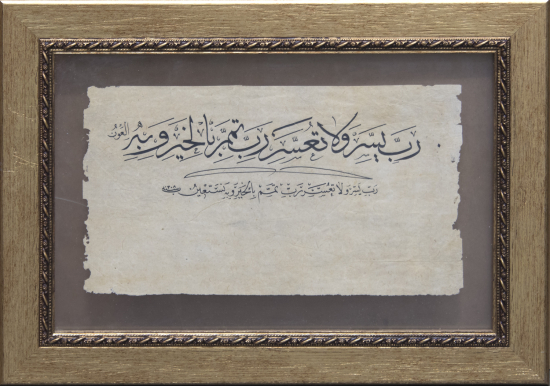 رب يسر ولا تعسر رب تمم بالخير وبه العون
رب يسر ولا تعسر رب تمم بالخير وبك نستعين